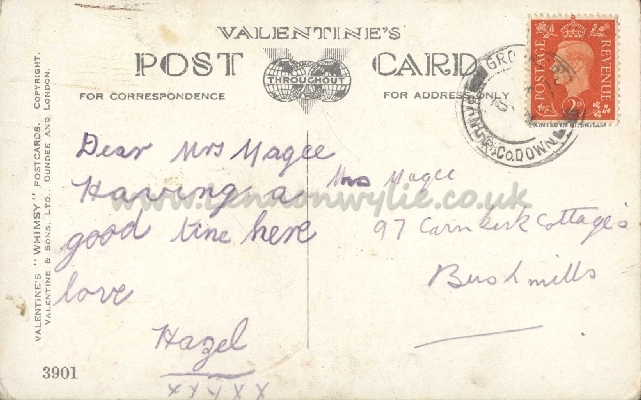 VALENTINE'S
POST CARD
THROUGHOUT
FOR CORRESPONDENCE
FOR ADDRESS ONLY
VALENTINE'S "WHIMSY" POSTCARDS. COPYRIGHT.
VALENTINE & SONS, LTD. DUNDEE AND LONDON.
POSTAGE REVENUE
2D
PRINTED IN GT. BRITAIN
Co. DOWN
Dear Mrs Magee
Having a
good time here
love
Hazel
XXXXX
Mrs Magee
97 Carnkirk Cottages
Bushmills
3901
www.lennonwylie.co.uk